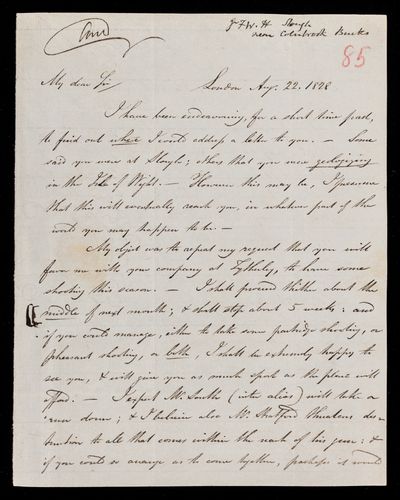 And
J F W H Slough
near Colnbrook Bucks
85
My dear Sir London Aug. 22. 1828
I have been endeavouring, for a short time past,
to find out where I could address a letter to you. — Some
said you were at Slough; others that you were geologizing
in the Isle of Wight. — However this may be, I presume
that this will eventually reach you, in whatever part of the
world you may happen to be. —
My object was to repeat my request that you will
favor me with your company at Tytherley, to have some
shooting this season. — I shall proceed thither about the
middle of next month; & shall stop about 5 weeks: and
if you could manage, either to take some partridge shooting, or
pheasant shooting, or both, I shall be extremely happy to
see you, & will give you as much sport as the place will
afford. — I expect Mr. South (inter alios) will take a
run down; & I believe also Mr. Stratford threatens des-
truction to all that comes within the reach of his gun: &
if you could so arrange as to come together, perhaps it would